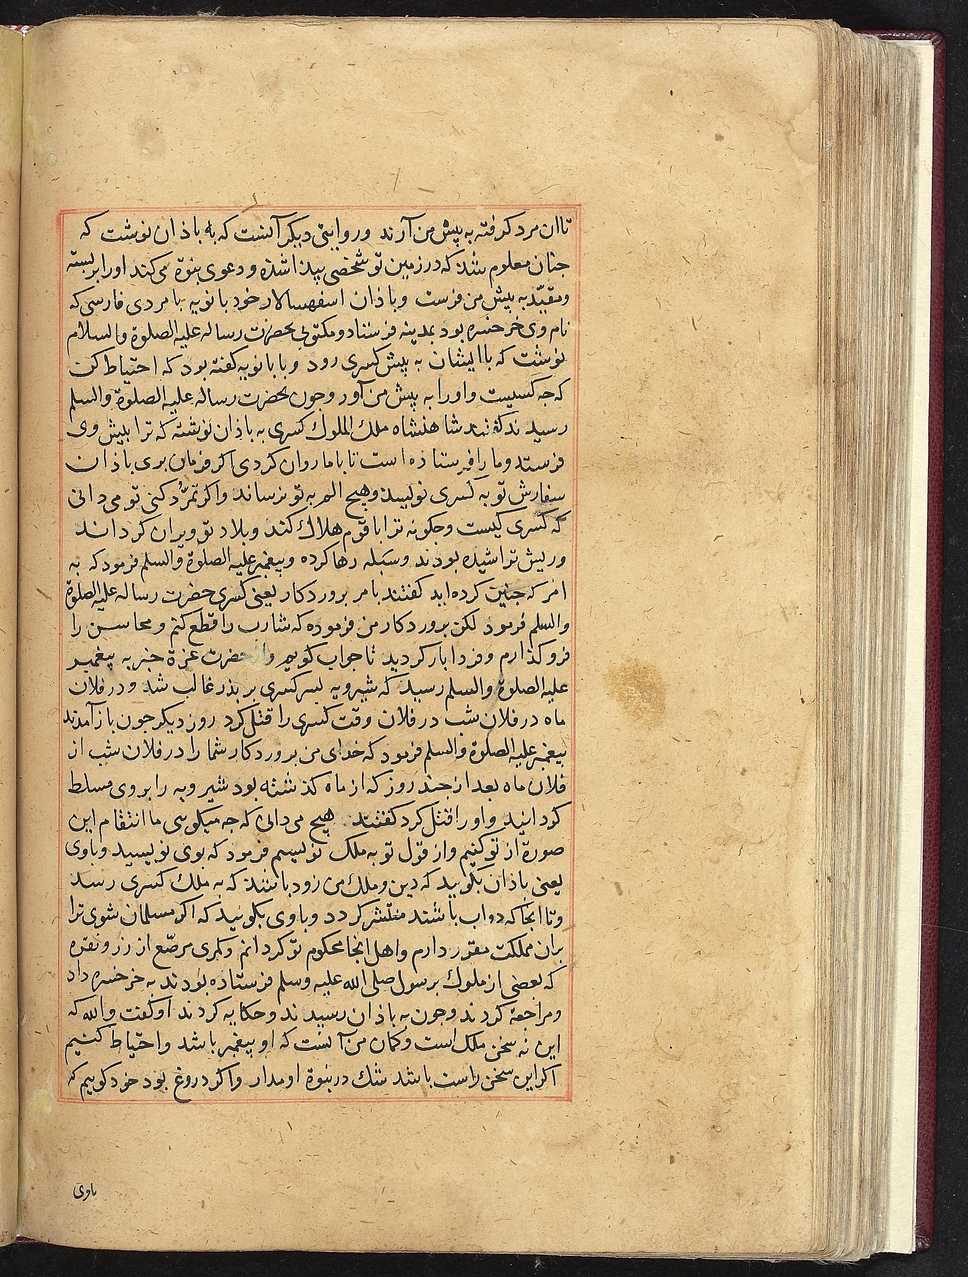 تا ان مرد کرفته به پیش من آرند و روایتی دیکر آنست که به باذان نوشت که
جنان معلوم شد که در زمین تو شخصی پیدا شده و دعوی نبوة می کند او را بر بسته
و مقیّد به پیش من فرست و باذان اسفهسالار خود بانویه با مردی فارسی که
نام وی خرخسره بود بمدینه فرستاد و مکتوبی بحضرت رساله علیه الصلوة والسلام
نوشت که با ایشان به پیش کسری رود و با بانویه کفته بود که احتیاط کن
که جه کسیست و او را به پیش من آور و جون بحضرت رساله علیه الصلوة والسلم
رسیدند کفتند شاهنشاه ملك الملوك کسری به باذان نوشته که ترا بیش وی
فرستد و ما را فرستاده است تا با ما روان کردی اکر فرمان بری باذان
سفارش تو به کسری نویسد و هیج الم به تو نرساند و اکر تمرّد کنی تو می دانی
که کسری کیست و حکونه ترا با قوم هلاك کند و بلاد تو ویران کرداند
و ریش تراشیده بودند و سبله رها کرده و پیغمبر علیه الصلوة والسلم فرمود که به
امر که جنین کرده اید کفتند بامر پروردکار یعنی کسری حضرت رساله علیه الصلوة
والسلم فرمود لکن پروردکار من فرموده که شارب را قطع کنم و محاسن را
فرو کذارم و فردا باز کردید تا جواب کویم و از حضرت عزة خبر به پیغمبر
علیه الصلوة والسلم رسید که شیرویه پسر کسری بر پدر غالب شد و در فلان
ماه در فلان شب در فلان وقت کسری را قتل کرد روز دیکر جون باز آمدند
پیغمبر علیه الصلوة والسلم فرمود که خدای من پروردکار شما را در فلان شب از
فلان ماه بعد از جند روز که از ماه کذشته بود شیرویه را بر وی مسلط
کردانید و او را قتل کرد کفتند هیج می دانی که جه میکویی ما انتقام این
صورة از تو کنیم و از قول تو به ملك نویسم فرمود که بوی نویسید و با وی
یعنی باذان بکویید که دین و ملك من زود باشد که به ملك کسری رسد
و تا انجا که دواب باشند منتشر کردد و با وی بکویید که اکر مسلمان شوی ترا
بران مملکت مقرر دارم و اهل انجا محکوم تو کردانم و کمری مرصّع از زر و نقره
که بعضی از ملوك بر رسول صلی الله علیه وسلم فرستاده بودند به خرخسره داد
و مراجعة کردند و جون به باذان رسیدند و حکایه کردند او کفت والله که
این نه سخن ملك است و کمان من آنست که او پیغمبر باشد و احتیاط کنیم
اکر این سخن راست باشد شك در نبوة او مدار و اکر دروغ بود خود کوییم که
با وی